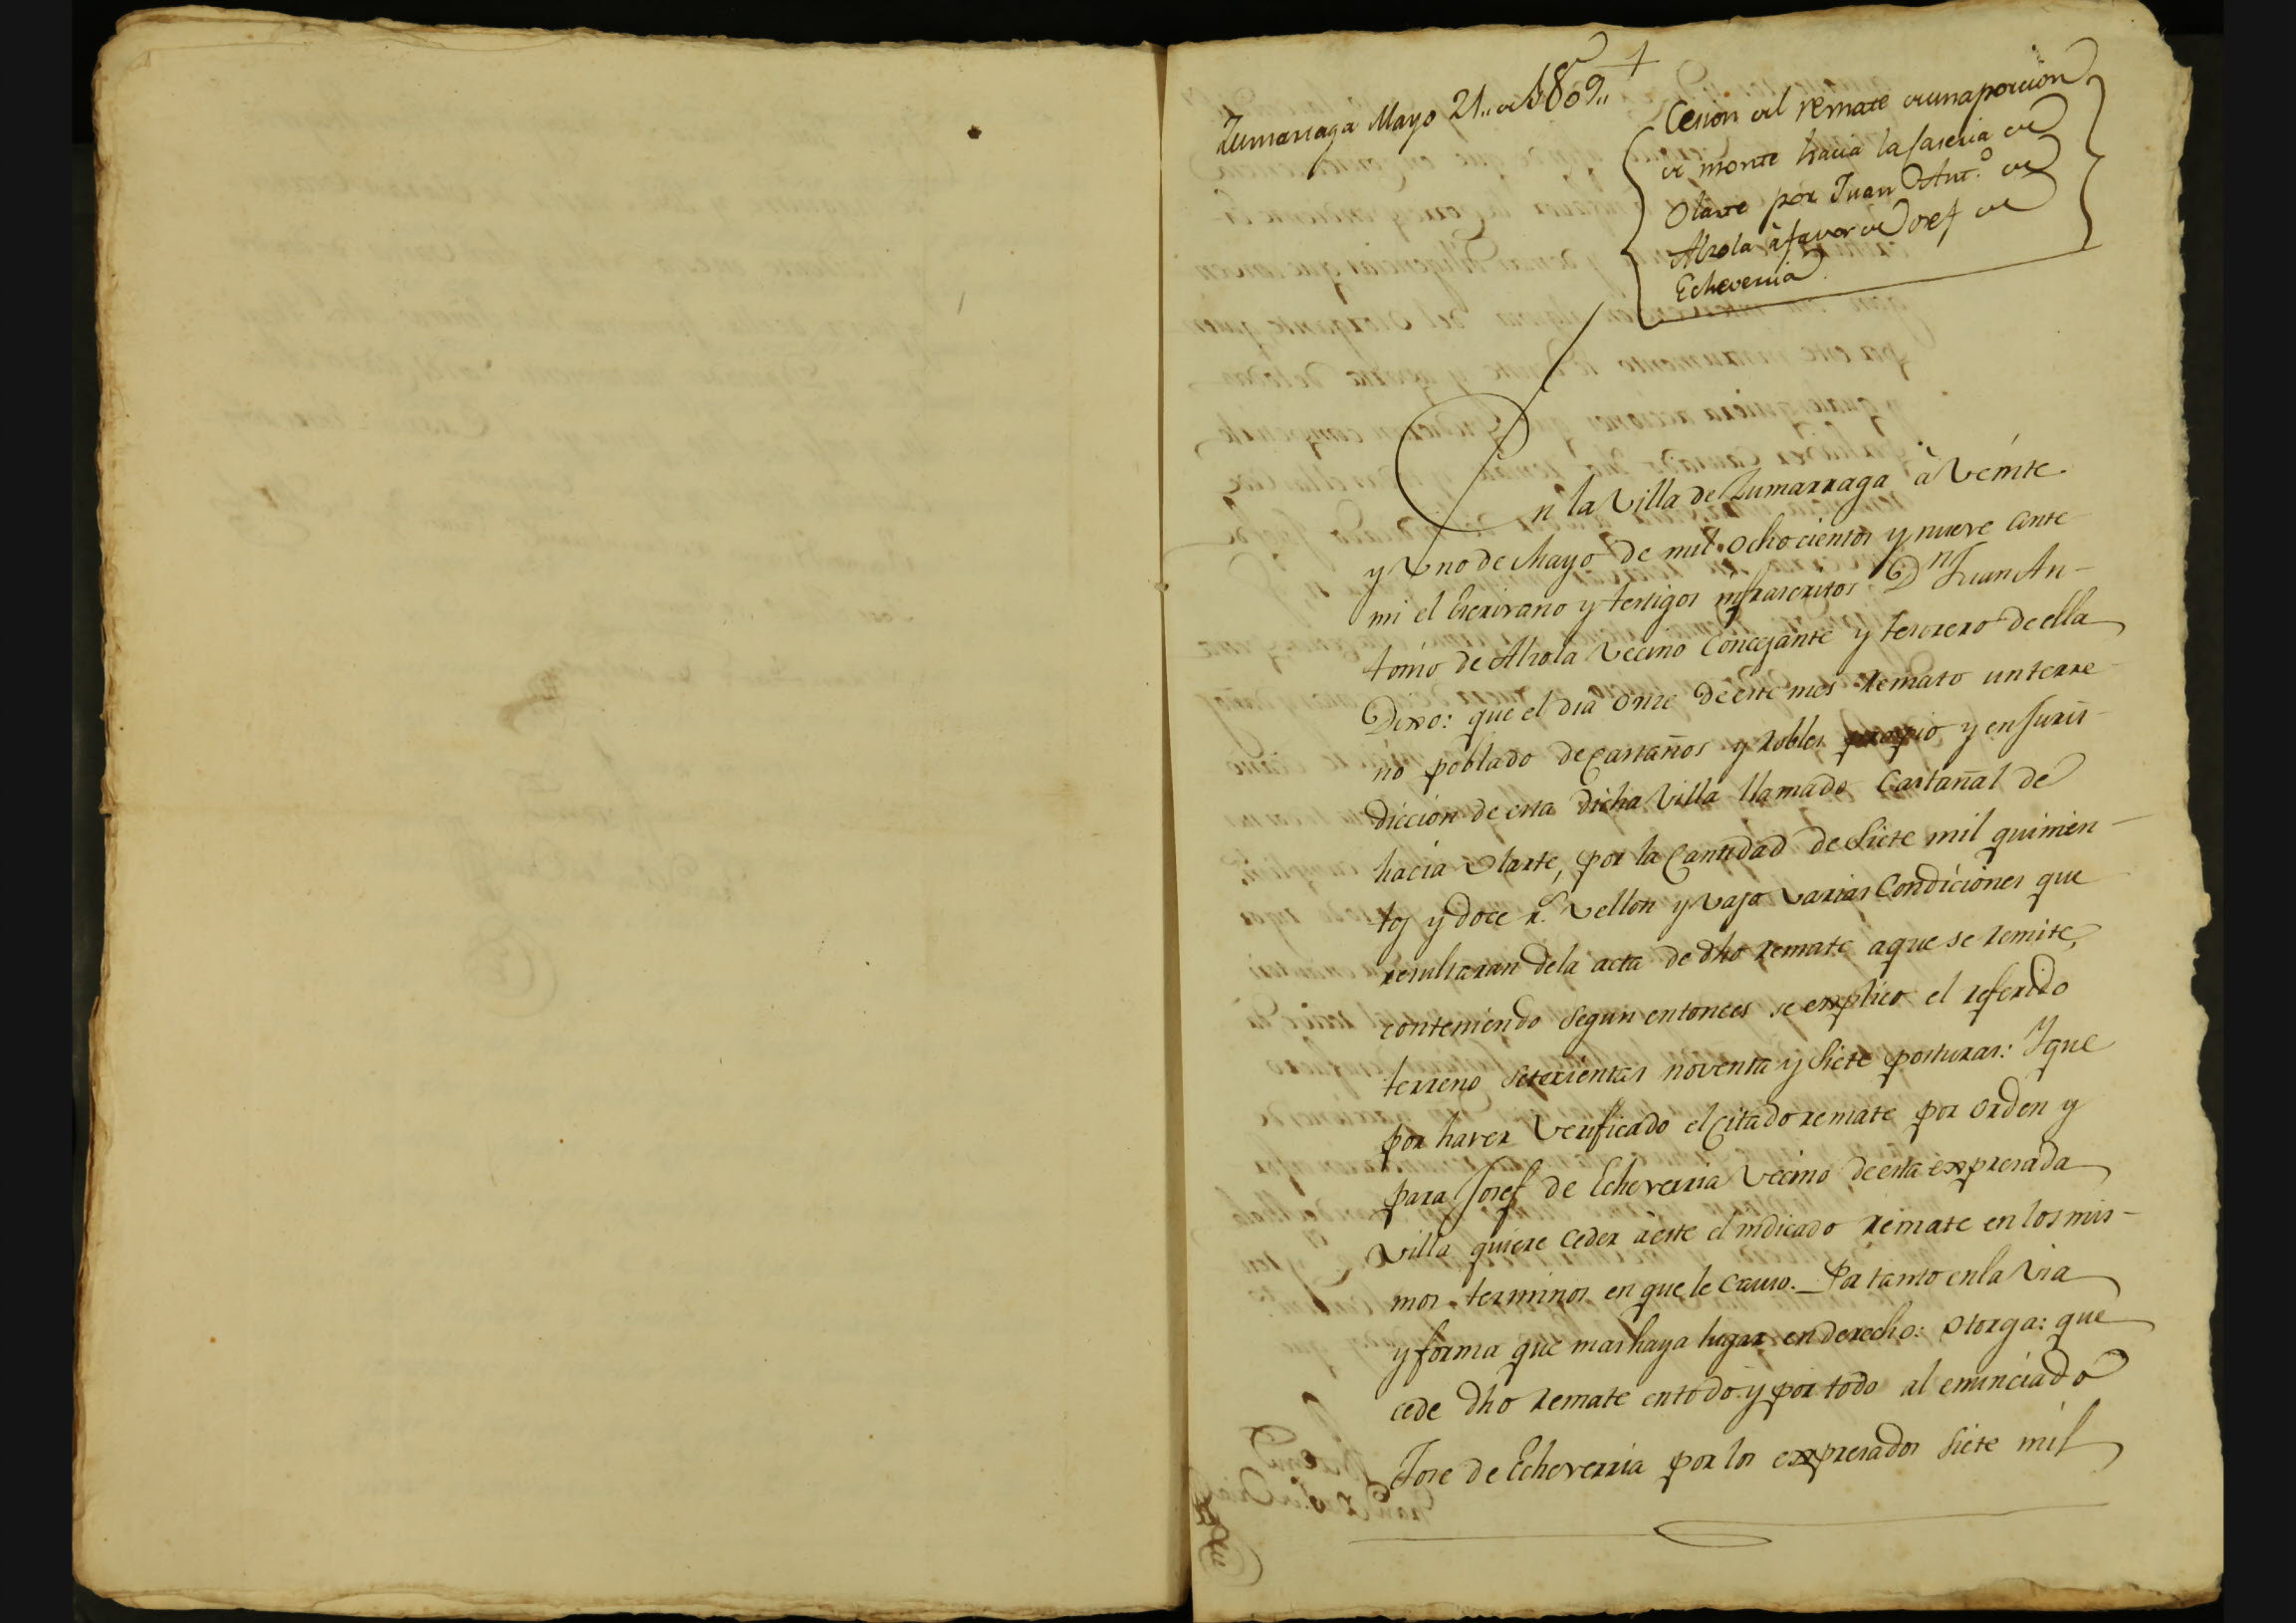 +
Zumarraga Mayo 21,, de 1809,,
Cesion del remate de una porcion
de monte hacia la Caseria de
Olarte por Juan Ant.º de
Alzola à favor de Josef de
Echeverria
En la Villa de Zumarraga à veinte
y Uno de Mayo de mil ochocientos y nueve ante
mi el Escrivano y testigos infrascritos Dn Juan An-
tonio de Alzola Vecino Concejante y tesorero de ella
Dixo: que el dia once de este mes remato un terre-
no poblado de Castaños y robles propio y en Juris-
diccion de esta dicha Villa llamado Castañal de
hacia Olarte, por la Cantidad de Siete mil quinien-
tos y doce r.s vellon y vajo varias Condiciones que
resultaran dela acta de dho remate a que se remite,
conteniendo segun entonces se explico el referido
terreno setecientas noventa y Siete posturas: Y que
por haver verificado el Citado remate por orden y
para Josef de Echeverria Vecino de esta expresada
Villa quiere Ceder à este el indicado remate en los mis-
mos terminos en que le Causo. Por tanto en la via
y forma que mas haya lugar en derecho: Otorga: que
cede dho remate en todo y por todo al enunciado
Jose de Echeverria por los expresados Siete mil